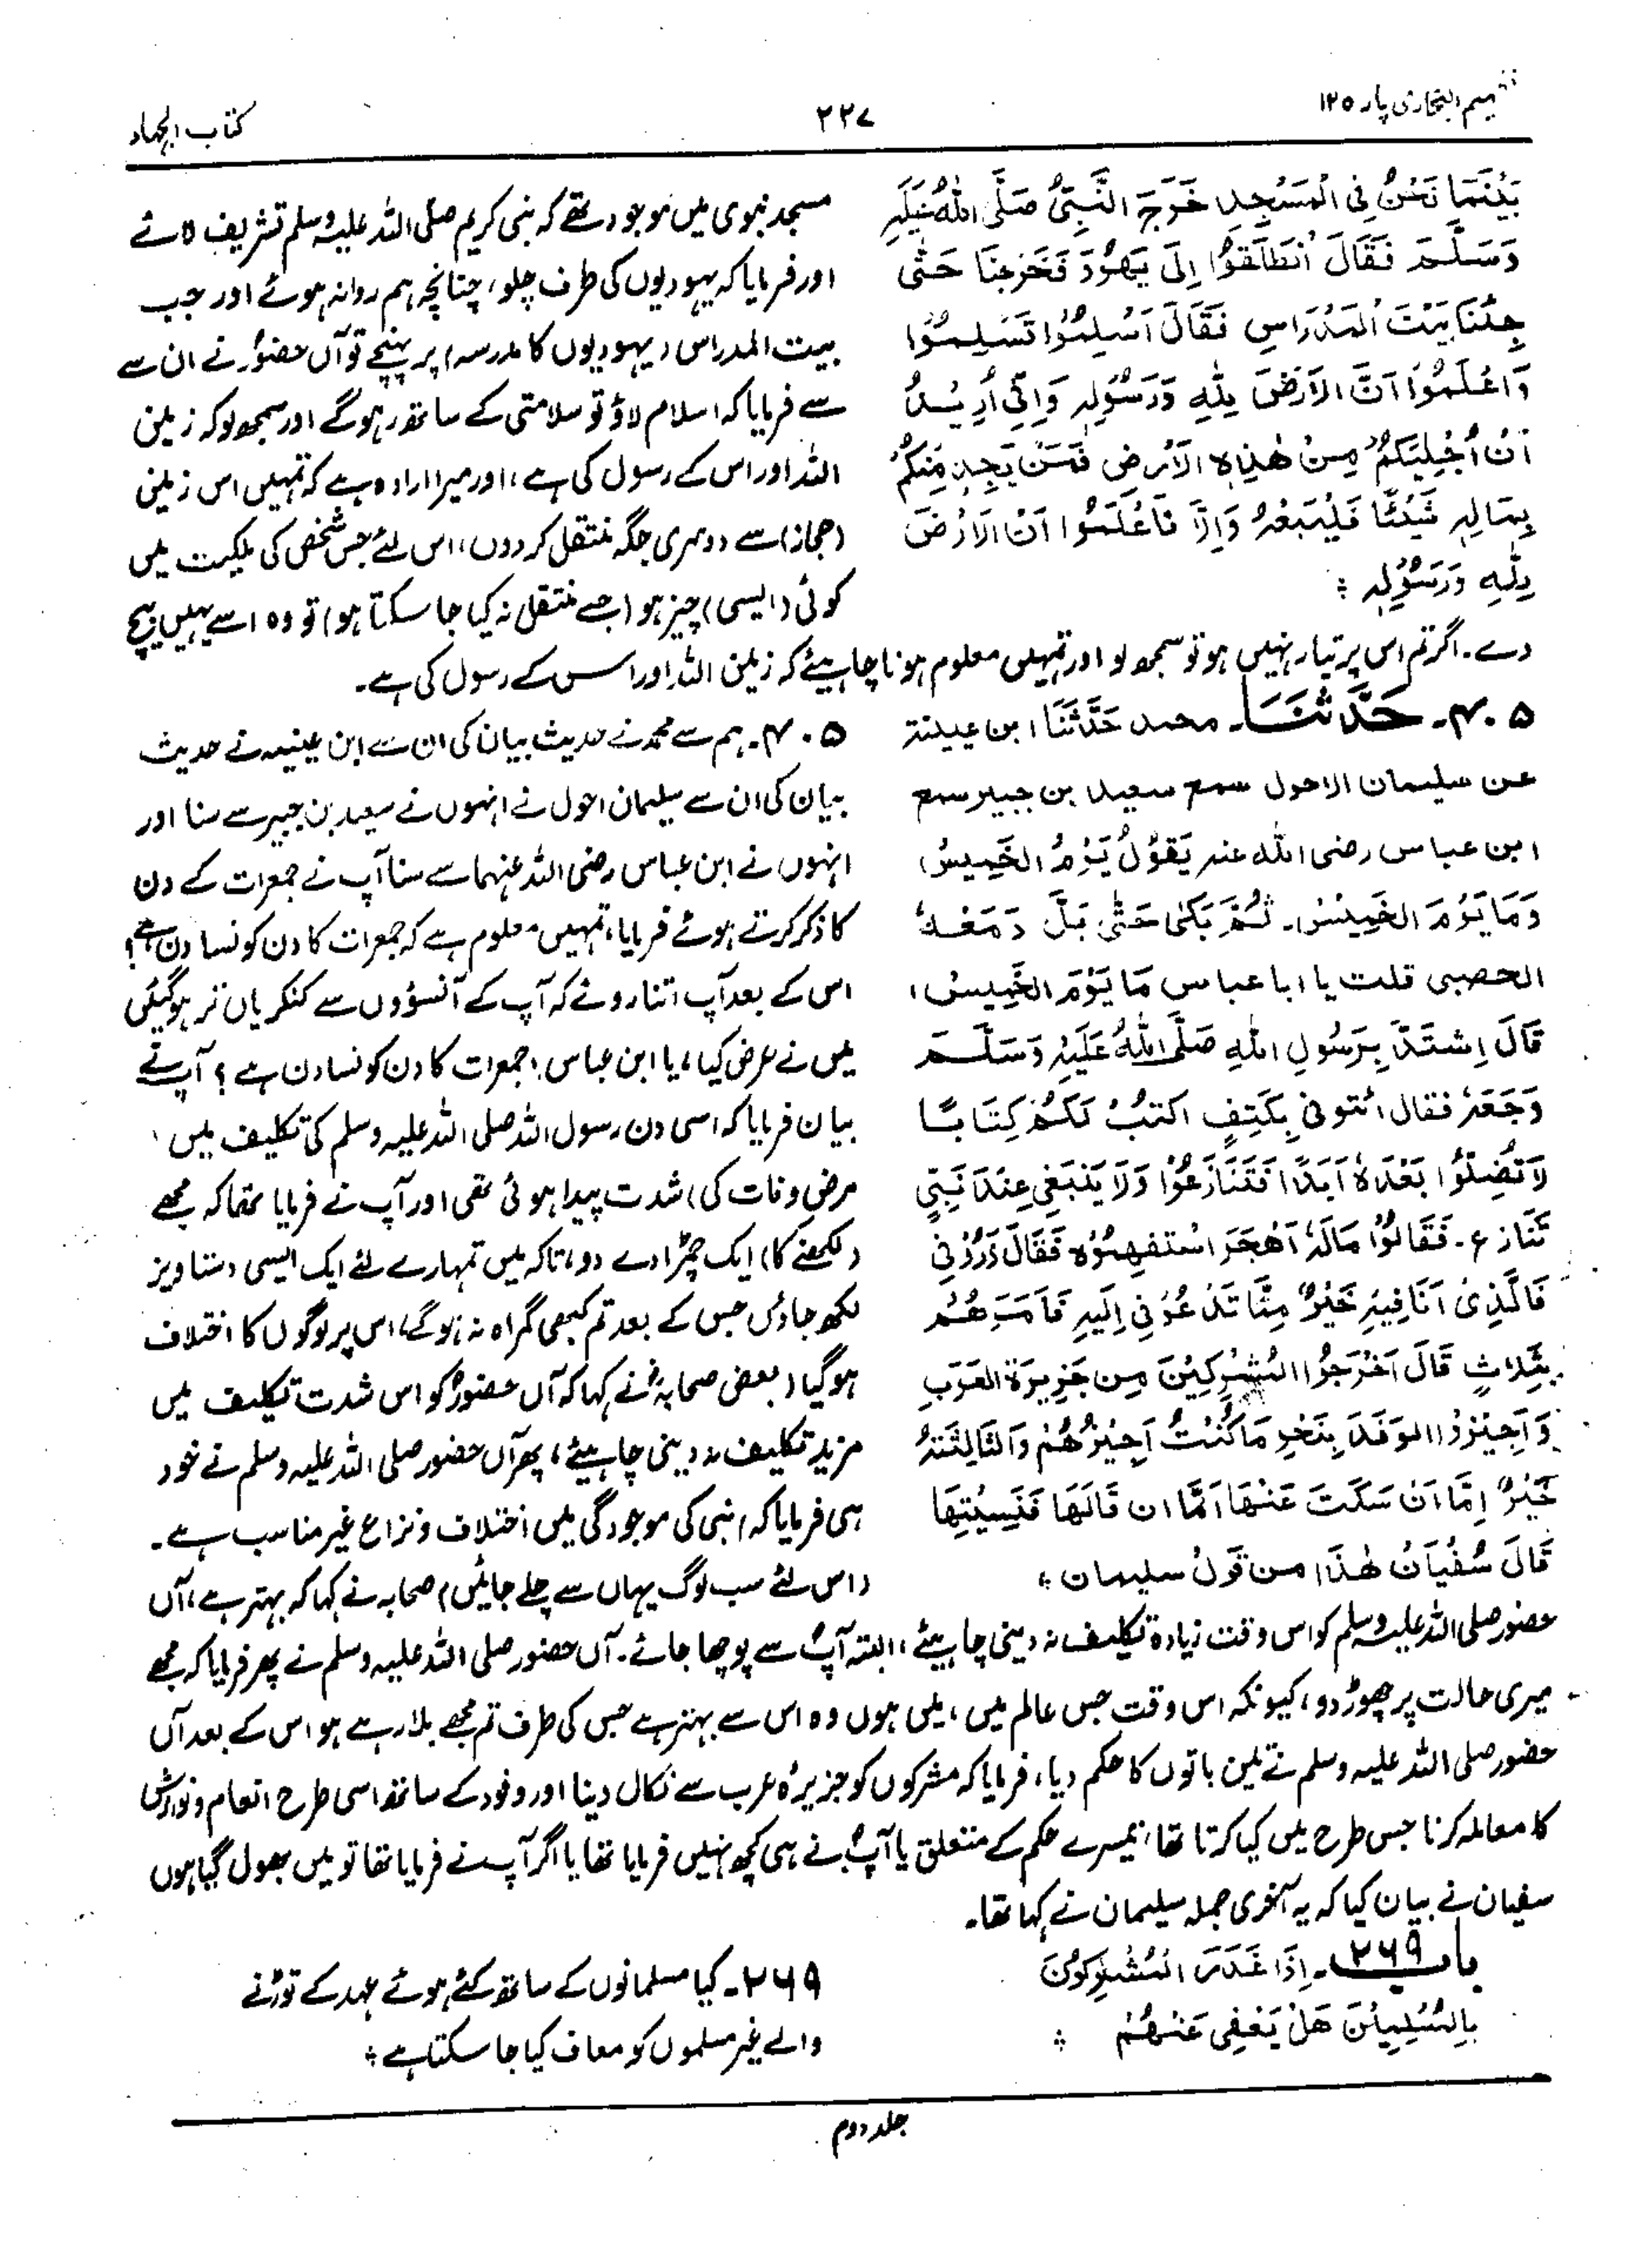 تفہیم البخاری پارہ ۱۲
۲۲۷
کتاب الجہاد
بَيْنَمَا نَحْنُ فِي الْمَسْجِدِ خَرَجَ النَّبِيُّ صَلَّى اللهُ عَلَيْهِ
وَسَلَّمَ فَقَالَ انْطَلِقُوْا اِلَى يَهُوْدَ فَخَرَجْنَا حَتّٰى
جِئْنَا بَيْتَ الْمَدْرَاسِ فَقَالَ اَسْلِمُوْا تَسْلِمُوْا
وَاعْلَمُوْا اَنَّ الْاَرْضَ لِلّٰهِ وَرَسُوْلِهٖ وَاِنِّيْ اُرِيْدُ
اَنْ اُجْلِيَكُمْ مِنْ هٰذِهِ الْاَرْضِ فَمَنْ يَجِدْ مِنْكُمْ
بِمَالِهٖ شَيْئًا فَلْيَبِعْهُ وَاِلَّا فَاعْلَمُوْا اَنَّ الْاَرْضَ
لِلّٰهِ وَرَسُوْلِهٖ ؞
مسجد نبوی میں موجود تھے کہ نبی کریم صلی اللہ علیہ وسلم تشریف لائے
اور فرمایا کہ یہودیوں کی طرف چلو، چنانچہ ہم روانہ ہوئے اور جب
بیت المدراس (یہودیوں کا مدرسہ) پر پہنچے تو آں حضورؐ نے ان سے
سے فرمایا کہ اسلام لاؤ تو سلامتی کے ساتھ رہو گے اور سمجھ لو کہ زمین
اللہ اور اس کے رسول کی ہے، اور میرا ارادہ ہے کہ تمہیں اس زمین
(حجاز) سے دوسری جگہ منتقل کر دوں، اس لئے جس شخص کی ملکیت میں
کوئی (ایسی) چیز ہو (جسے منتقل نہ کیا جا سکتا ہو) تو وہ اسے یہیں بیچ
دے۔ اگر تم اس پر تیار نہیں ہو تو سمجھ لو اور تمہیں معلوم ہونا چاہیئے کہ زمین اللہ اور اس کے رسول کی ہے۔
۴۰۵۔ حَدَّثَنَا۔ محمد حَدَّثَنَا ابن عیینة
عن سلیمان الاحول سمع سعید بن جبیر سمع
ابن عباس رضی الله عنہ يَقُوْلُ يَوْمُ الخَمِيسِ
وَمَا يَوْمَ الخَمِيْسُ۔ ثُمَّ بَكٰى حَتّٰى بَلَّ دَمَعهُ
الحصبی قلت یا ابا عباس مَا يَوْمَ الْخَمِيسِ،
قَالَ اِشتَدَّ بِرَسُولِ اللهِ صَلَّى اللهُ عَلَيْهِ وَسَلَّمَ
وَجَعَهٗ فقال ائتو نی بِكَتِفٍ اكتبُ لَكُمْ كِتَابًا
لَا تَضِلُّوْا بَعْدَهٗ اَبَدًا فَتَنَازَعُوْا وَلَا يَنْبَغِي عِنْدَ نَبِيٍّ
تَنَازع۔ فَقَالُوْا مَالَهٗ اَهَجَرَ اسْتَفهِمُوْهُ فَقَالَ ذَرُوْنِي
فَالَّذِي اَنَا فِيْهِ خَيْرٌ مِمَّا تَدْعُوْنِي اِلَيْهِ فَاَمَرَهُمْ
بِثَلاثٍ قَالَ اَخْرِجُوْا الْمُشْرِكِيْنَ مِن جَزِيرَةِ العَرَبِ
وَاَجِيْزُوْا الوَفْدَ بِنَحْوِ مَا كُنْتُ اُجِيْزُهُمْ وَالثَّالِثَةُ
خَيْرٌ اِمَّا اَنْ سَكَتَ عَنْهَا اَمَّا ان قَالَهَا فَنَسِيْتُهَا
قَالَ سُفْيَانُ هٰذَا من قَوْلِ سلیمان ؞
۴۰۵۔ ہم سے محمد نے حدیث بیان کی ان سے ابن عیینہ نے حدیث
بیان کی ان سے سلیمان احول نے انہوں نے سعید بن جبیر سے سنا اور
انہوں نے ابن عباس رضی اللہ عنہما سے سنا آپ نے جمعرات کے دن
کا ذکر کرتے ہوئے فرمایا، تمہیں معلوم ہے کہ جمعرات کا دن کونسا دن ہے؟
اس کے بعد آپ اتنا روئے کہ آپ کے آنسوؤں سے کنکریاں تر ہو گئیں
میں نے عرض کیا، یا ابن عباس! جمعرات کا دن کونسا دن ہے؟ آپ نے
بیان فرمایا کہ اسی دن رسول اللہ صلی اللہ علیہ وسلم کی تکلیف میں
مرض وفات کی) شدت پیدا ہوئی تھی اور آپ نے فرمایا تھا کہ مجھے
(لکھنے کا) ایک چمڑا دے دو، تاکہ میں تمہارے لئے ایک ایسی دستاویز
لکھ جاؤں جس کے بعد تم کبھی گمراہ نہ ہو گے، اس پر لوگوں کا اختلاف
ہو گیا (بعض صحابہؓ نے کہا کہ آں حضورؐ کو اس شدت تکلیف میں
مزید تکلیف نہ دینی چاہیئے، پھر آں حضور صلی اللہ علیہ وسلم نے خود
ہی فرمایا کہ نبی کی موجودگی میں اختلاف و نزاع غیر مناسب ہے۔
(اس لئے سب لوگ یہاں سے چلے جائیں) صحابہ نے کہا کہ بہتر ہے، آں
حضور صلی اللہ علیہ وسلم کو اس وقت زیادہ تکلیف نہ دینی چاہیئے، البتہ آپؐ سے پوچھا جائے۔ آں حضور صلی اللہ علیہ وسلم نے پھر فرمایا کہ مجھے
میری حالت پر چھوڑ دو، کیونکہ اس وقت جس عالم میں، میں ہوں وہ اس سے بہتر ہے جس کی طرف تم مجھے بلا رہے ہو اس کے بعد آں
حضور صلی اللہ علیہ وسلم نے تین باتوں کا حکم دیا، فرمایا کہ مشرکوں کو جزیرہ عرب سے نکال دینا اور وفود کے ساتھ اسی طرح انعام و نوازش
کا معاملہ کرنا جس طرح میں کیا کرتا تھا، تیسرے حکم کے متعلق یا آپؐ نے ہی کچھ نہیں فرمایا تھا یا اگر آپ نے فرمایا تھا تو میں بھول گیا ہوں
سفیان نے بیان کیا کہ یہ آخری جملہ سلیمان نے کہا تھا۔
باب ۲۶۹۔ اِذَا غَدَرَ الْمُشْرِكُوْنَ
بِالْمُسْلِمِيْنَ هَلْ يُعْفٰى عَنْهُمْ ؞
۲۶۹۔ کیا مسلمانوں کے ساتھ کئے ہوئے عہد کے توڑنے
والے غیر مسلموں کو معاف کیا جا سکتا ہے؞
جلد دوم